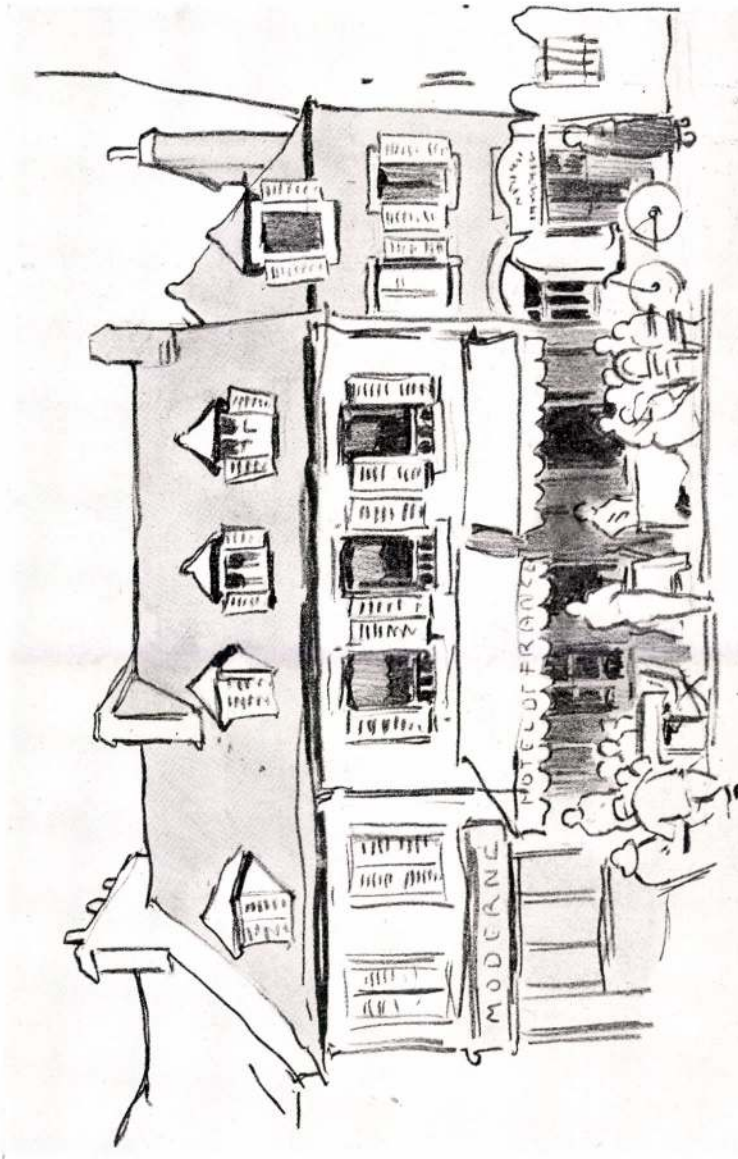 MODERNE
HOTEL DE FRANCE